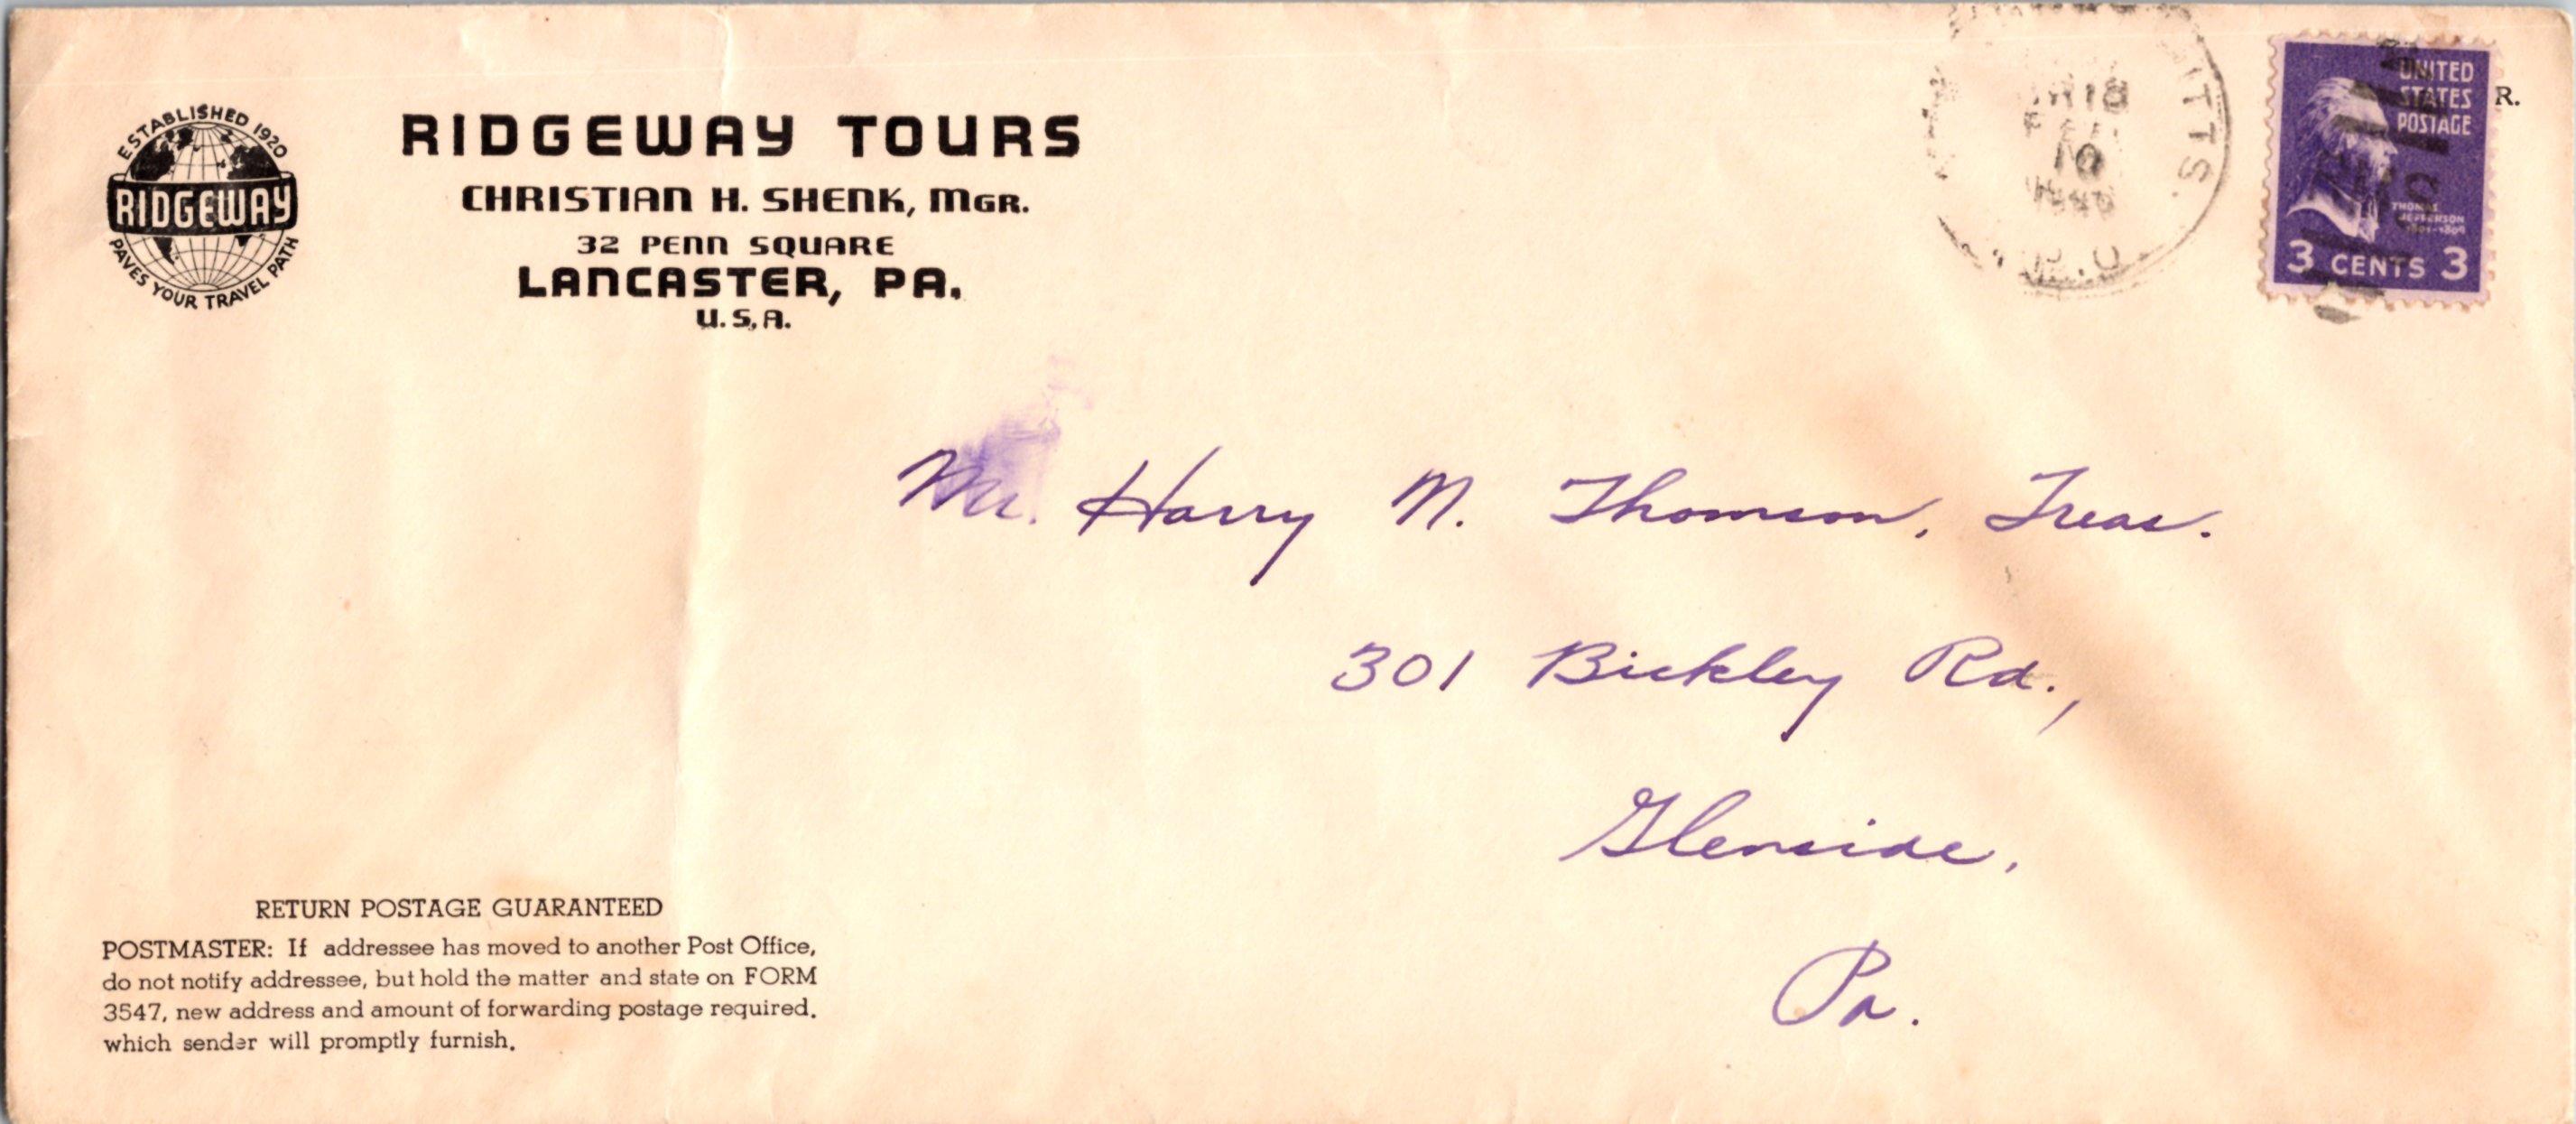 ESTABLISHED 1920
RIDGEWAY
PAVES YOUR TRAVEL PATH
RIDGEWAY TOURS
CHRISTIAN H. SHENK, MGR.
32 PENN SQUARE
LANCASTER, PA.
U.S.A.
UNITED
STATES
POSTAGE
THOMAS
JEFFERSON
3 CENTS 3
R.
Mr. Harry N. Thomson, Treas.
301 Bickley Rd.,
Glenside,
Pa.
RETURN POSTAGE GUARANTEED
POSTMASTER: If addressee has moved to another Post Office,
do not notify addressee, but hold the matter and state on FORM
3547, new address and amount of forwarding postage required,
which sender will promptly furnish.